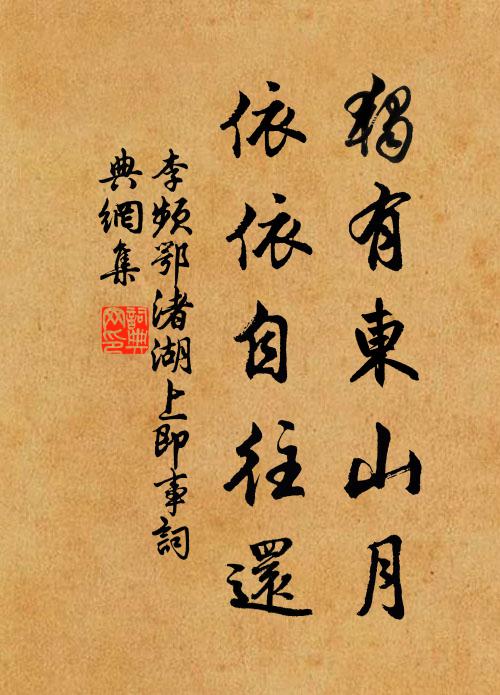 獨有東山月
依依自往還
李頻鄂渚湖上即事詞
典網集
詞典網印